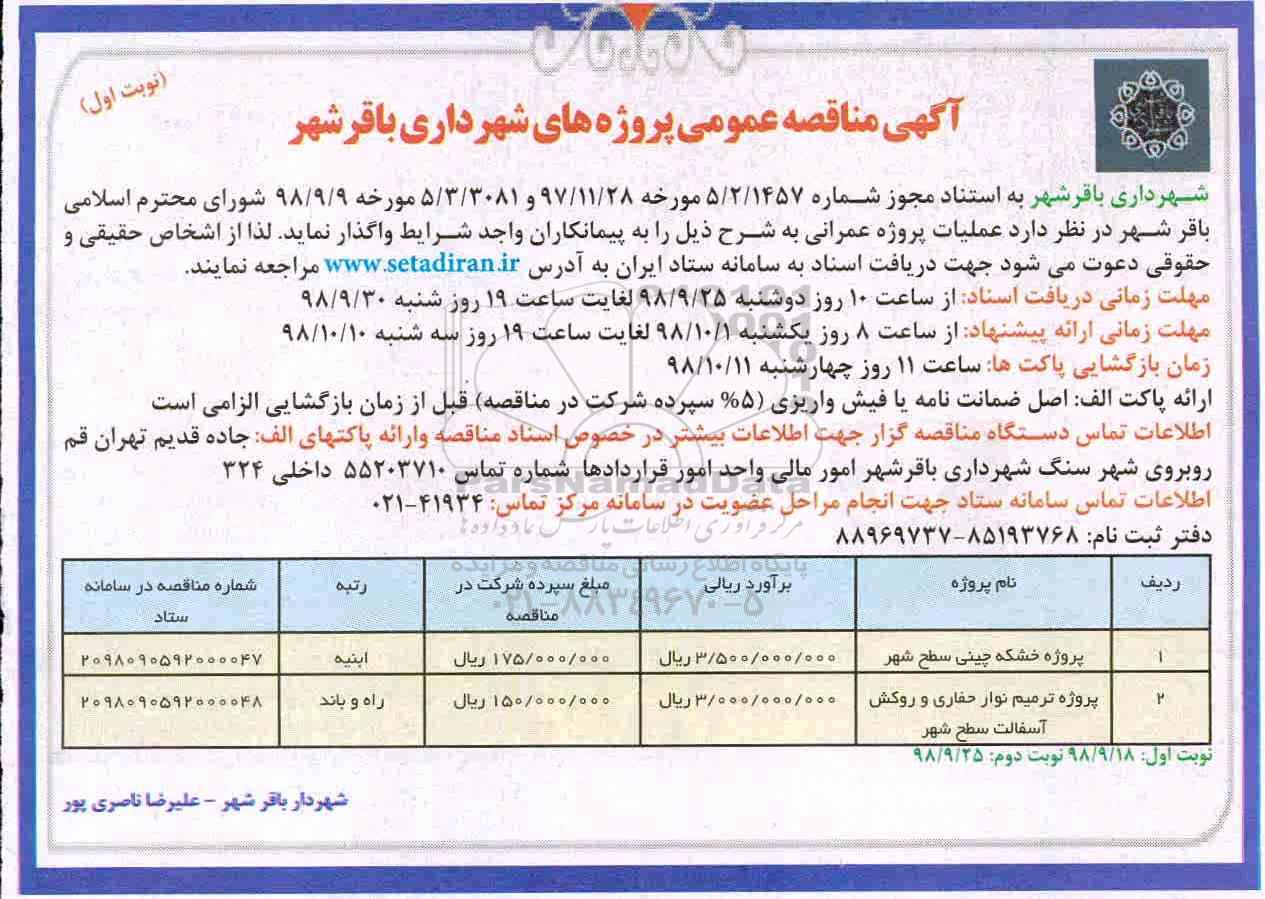 (نوبت اول)
آگهی مناقصه عمومی پروژه های شهرداری باقرشهر
شهرداری باقرشهر به استناد مجوز شماره ۵/۲/۱۴۵۷ مورخه ۹۷/۱۱/۲۸ و ۵/۳/۳۰۸۱ مورخه ۹۸/۹/۹ شورای محترم اسلامی
باقر شهر در نظر دارد عملیات پروژه عمرانی به شرح ذیل را به پیمانکاران واجد شرایط واگذار نماید. لذا از اشخاص حقیقی و
حقوقی دعوت می شود جهت دریافت اسناد به سامانه ستاد ایران به آدرس www.setadiran.ir مراجعه نمایند.
مهلت زمانی دریافت اسناد: از ساعت ۱۰ روز دوشنبه ۹۸/۹/۲۵ لغایت ساعت ۱۹ روز شنبه ۹۸/۹/۳۰
مهلت زمانی ارائه پیشنهاد: از ساعت ۸ روز یکشنبه ۹۸/۱۰/۱ لغایت ساعت ۱۹ روز سه شنبه ۹۸/۱۰/۱۰
زمان بازگشایی پاکت ها: ساعت ۱۱ روز چهارشنبه ۹۸/۱۰/۱۱
ارائه پاکت الف: اصل ضمانت نامه یا فیش واریزی (۵% سپرده شرکت در مناقصه) قبل از زمان بازگشایی الزامی است
اطلاعات تماس دستگاه مناقصه گزار جهت اطلاعات بیشتر در خصوص اسناد مناقصه وارائه پاکتهای الف: جاده قدیم تهران قم
روبروی شهر سنگ شهرداری باقرشهر امور مالی واحد امور قراردادها شماره تماس ۵۵۲۰۳۷۱۰ داخلی ۳۲۴
اطلاعات تماس سامانه ستاد جهت انجام مراحل عضویت در سامانه مرکز تماس: ۴۱۹۳۴-۰۲۱
دفتر ثبت نام: ۸۵۱۹۳۷۶۸-۸۸۹۶۹۷۳۷
ParsNamadData
مرکز فرآوری اطلاعات پارس نماد داده ها
پایگاه اطلاع رسانی مناقصه و مزایده
۰۲۱-۸۸۳۴۹۶۷۰-۵
ردیف نام پروژه برآورد ریالی مبلغ سپرده شرکت در مناقصه رتبه شماره مناقصه در سامانه ستاد
۱ پروژه خشکه چینی سطح شهر ۳/۵۰۰/۰۰۰/۰۰۰ ریال ۱۷۵/۰۰۰/۰۰۰ ریال ابنیه ۲۰۹۸۰۹۰۵۹۲۰۰۰۰۴۷
۲ پروژه ترمیم نوار حفاری و روکش آسفالت سطح شهر ۳/۰۰۰/۰۰۰/۰۰۰ ریال ۱۵۰/۰۰۰/۰۰۰ ریال راه و باند ۲۰۹۸۰۹۰۵۹۲۰۰۰۰۴۸
نوبت اول: ۹۸/۹/۱۸ نوبت دوم: ۹۸/۹/۲۵
شهردار باقر شهر - علیرضا ناصری پور